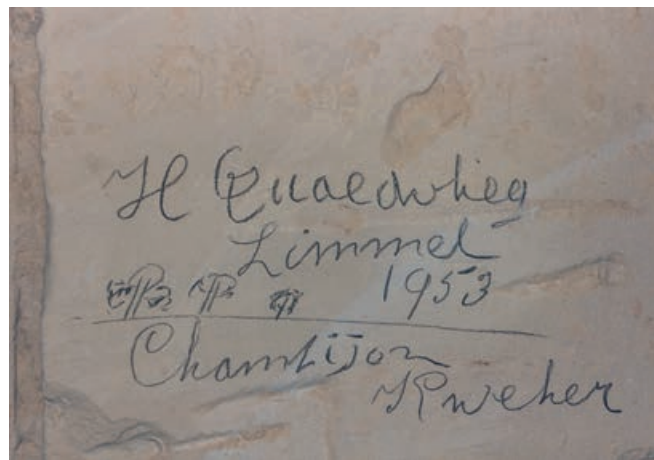 H Quaedvlieg
Limmel
1953
Champijon
Kweker